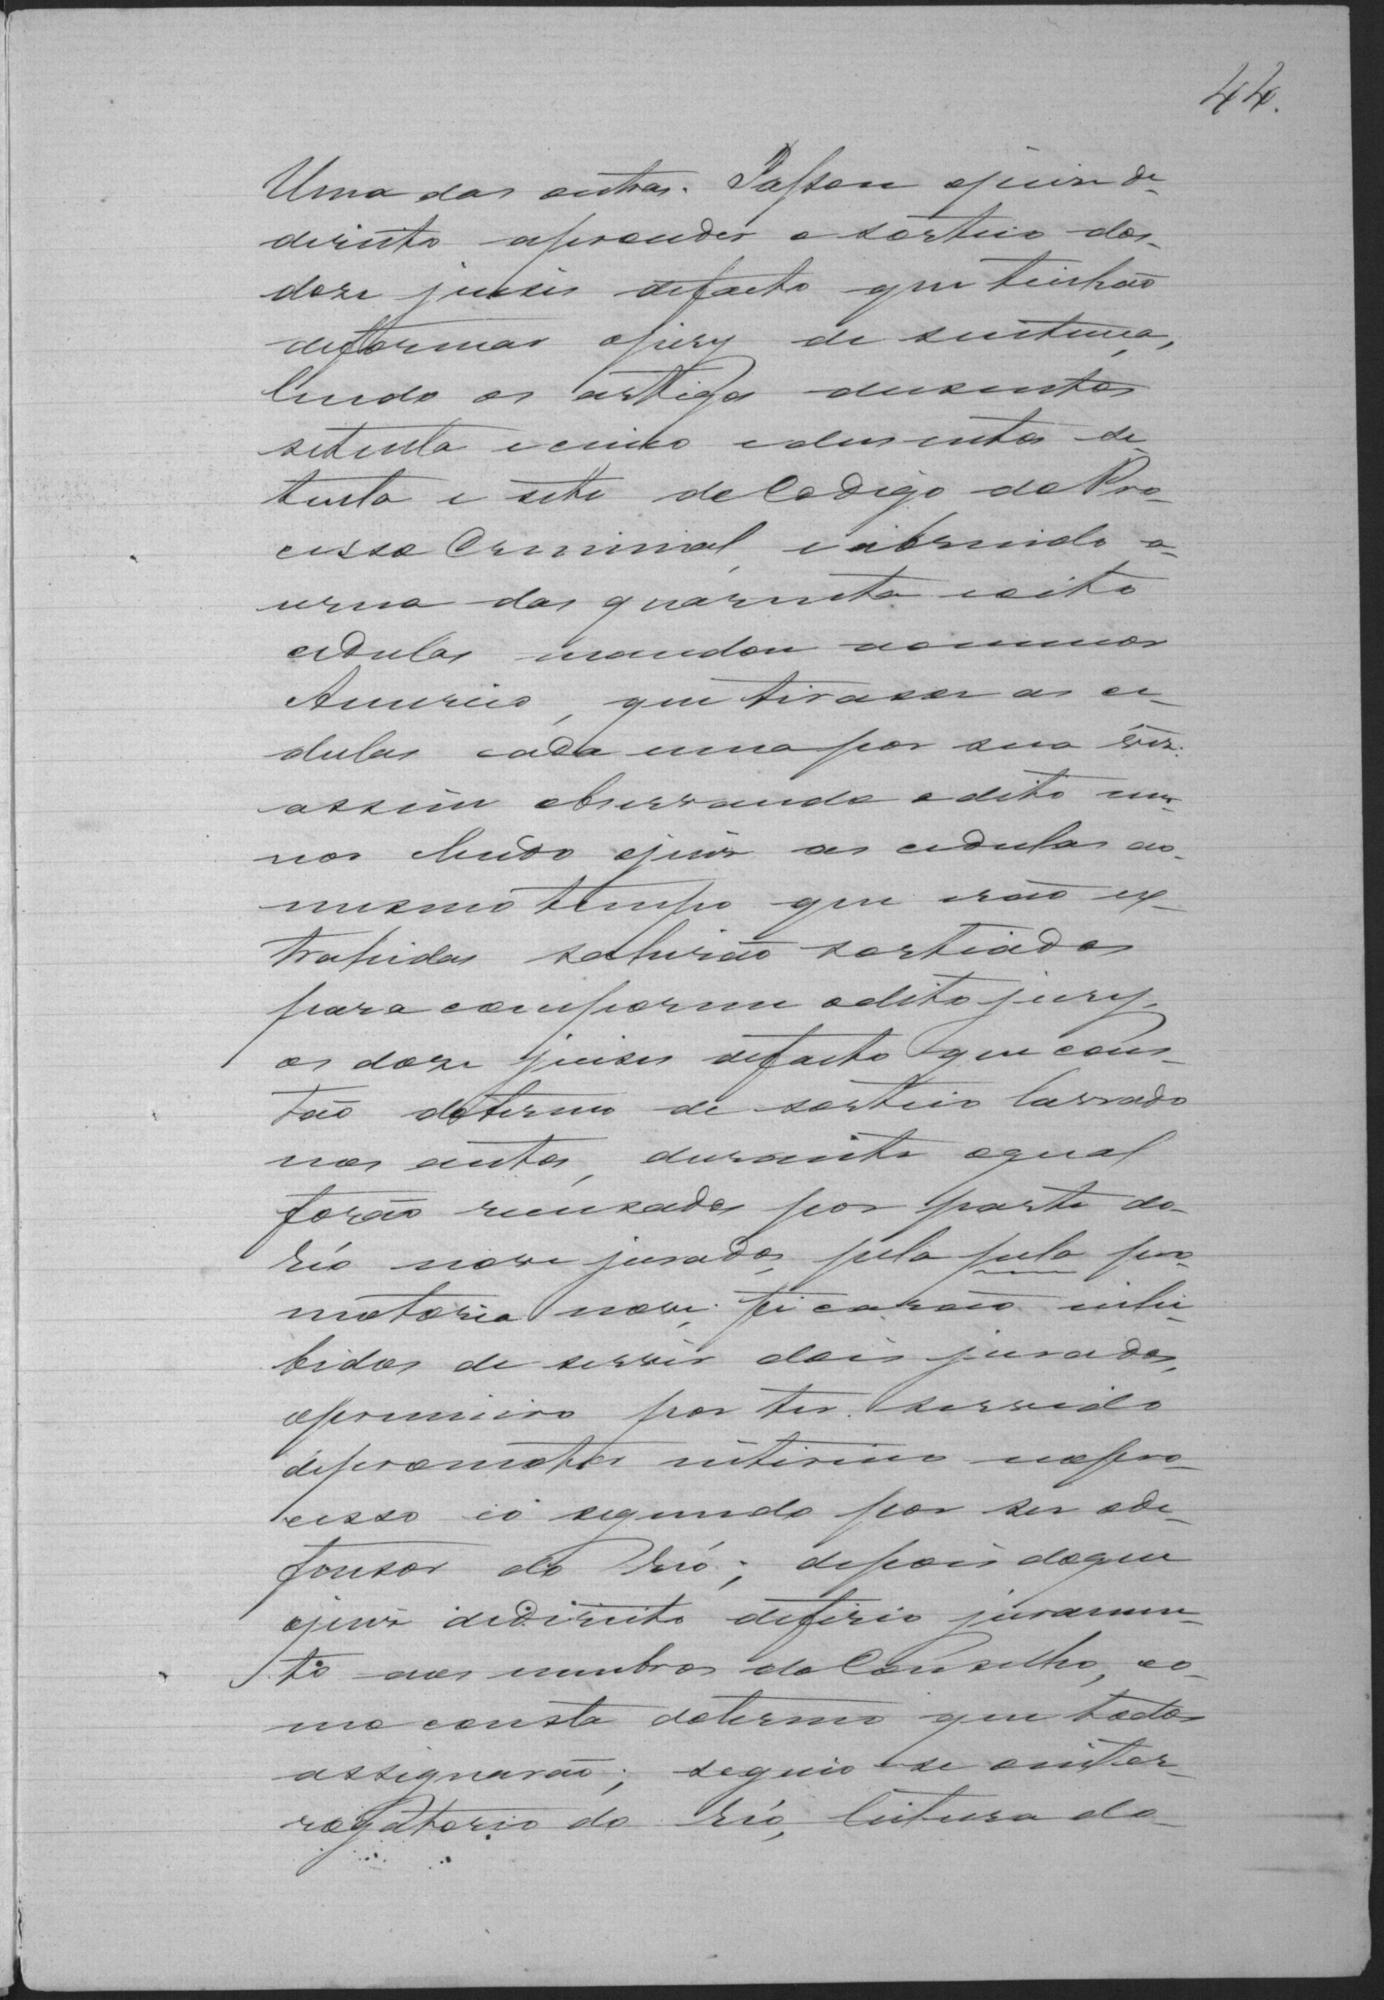 44.
Uma das outras. Passou o juiz de
direito aproceder o sorteio dos
doze juises defacto que tinhão
deformar ojury de sentença,
lendo os artigos dusentos
setenta e cinco e dusentos se
tenta e sete do Codigo do Pro-
cesso Criminal, e abrindo a
urna das quarenta e oito
cedulas mandou ao menor
Americo, que tirasse as ce-
dulas cada uma por sua vez.
assim observando o dito me-
nor e lendo ojuiz as cedulas ao
mesmo tempo que erão ex-
trahidas sahirão sorteados
para comporem o dito jury
os doze juises defacto que cons-
tão do termo de sorteio lavrado
nos autos, durante o qual
forão recusados por parte do
réo nove jurados, pela pela pro-
motoria nove; ficarão inhi-
bidos de servir dois jurados,
oprimeiro por ter servido
depromotor interino no pro-
cesso e o segundo por ser o de-
fensor do réo; depois do que
ojuiz de direito deferio juramen-
to aos membros do Conselho, co-
mo consta do termo que todos
assignarão; seguio-se o inter-
rogatorio do réo, leitura do